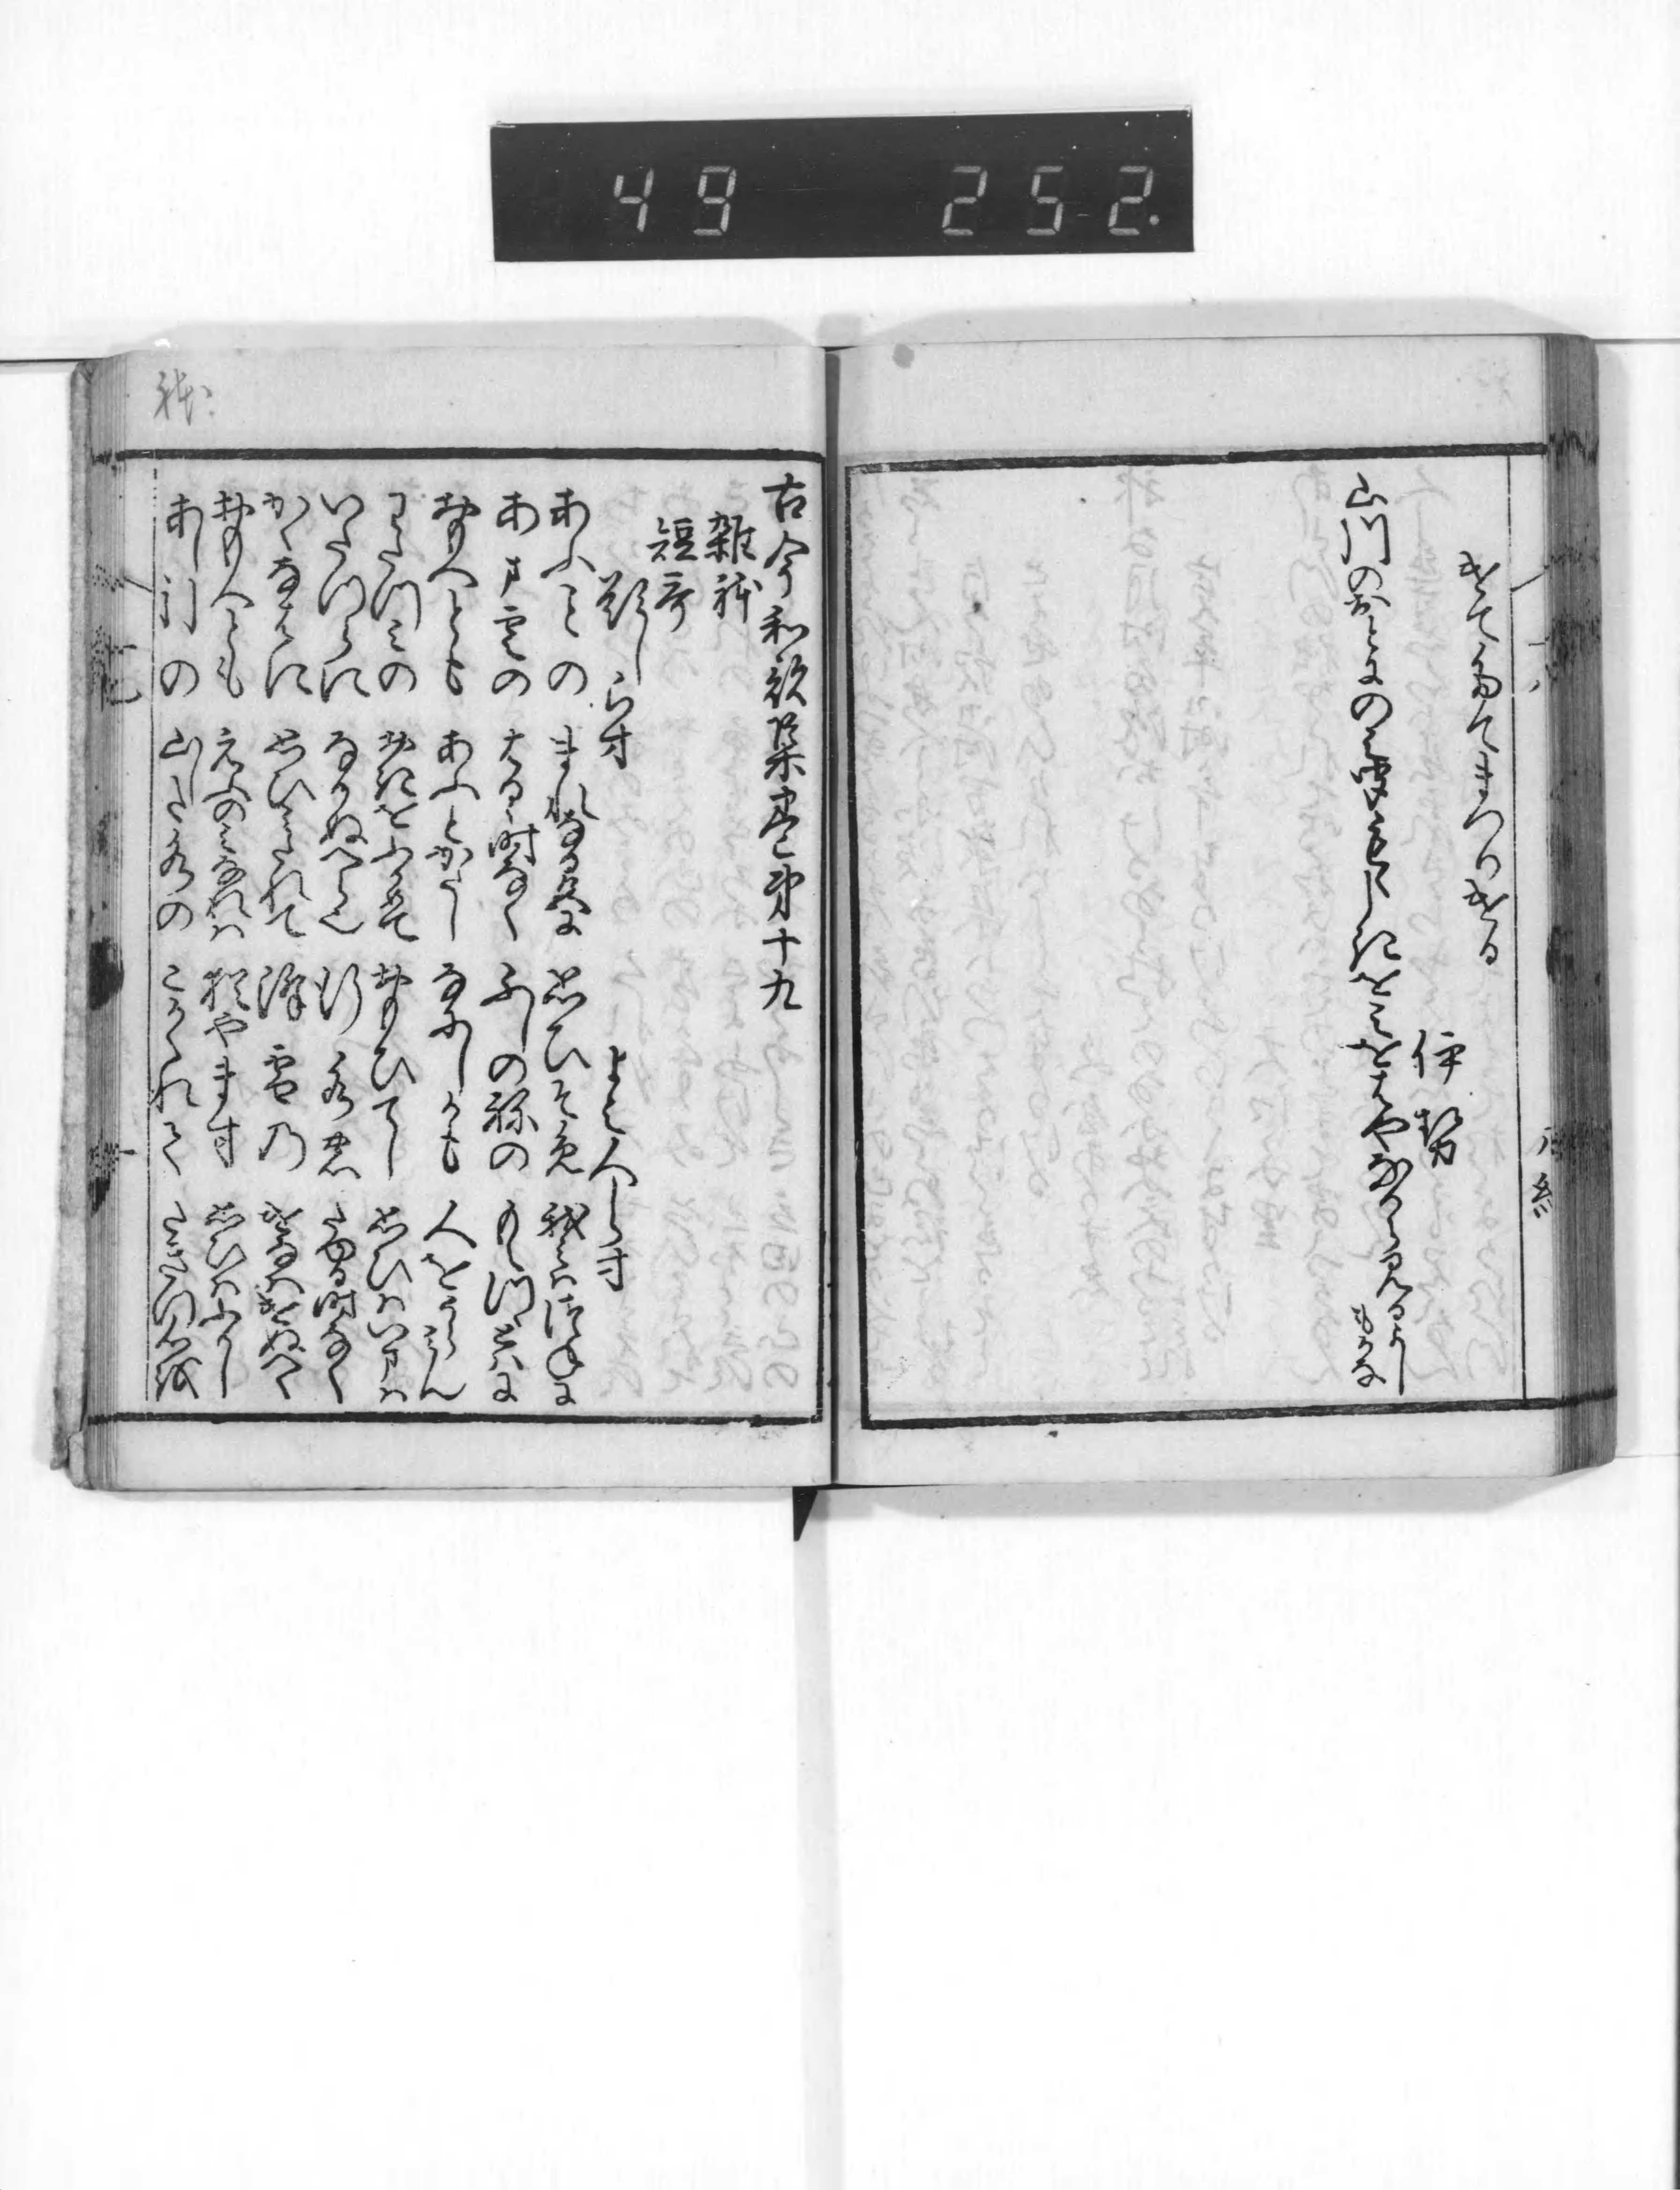 49 252.
きてたてまつりける
伊勢
山川のおとにのみきくもゝしきをみをはやなからみるよし
もかな
古今和歌集巻第十九
雑体
短哥
題しらす よみ人しらす
あふことの まれなる色に 思ひそめ 我みはつねに
あま雲の はるゝ時なく ふしの祢の もえつゝとはに
おもへとも あふことかたし なにしかも 人をうらみん
わたつみの おきをふかめて おもひてし おもひはいまは
いたつらに なりぬへら也 行水の たゆる時なく
かくなわに おもひみたれて 降雪の けなはけぬへく
おもへとも えふのみなれは 猶やます おもひはふかし
あし引の 山した水の こかくれて たきつ心を